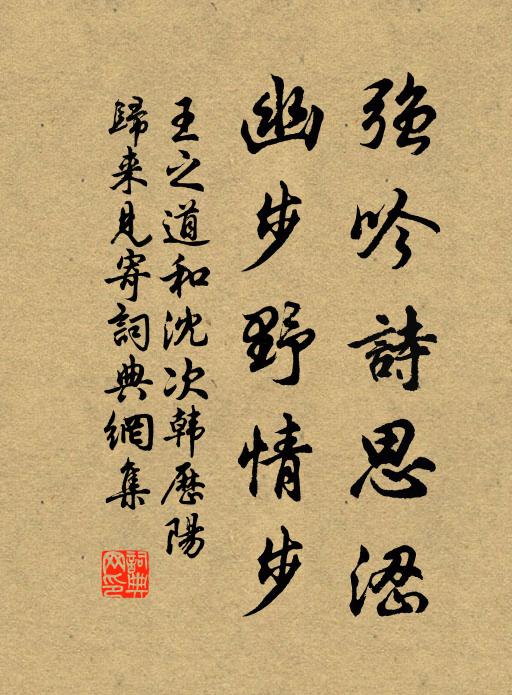 強吟詩思澀
幽步野情步
王之道和沈次韩歷陽
歸来見寄詞典網集
詞典网印